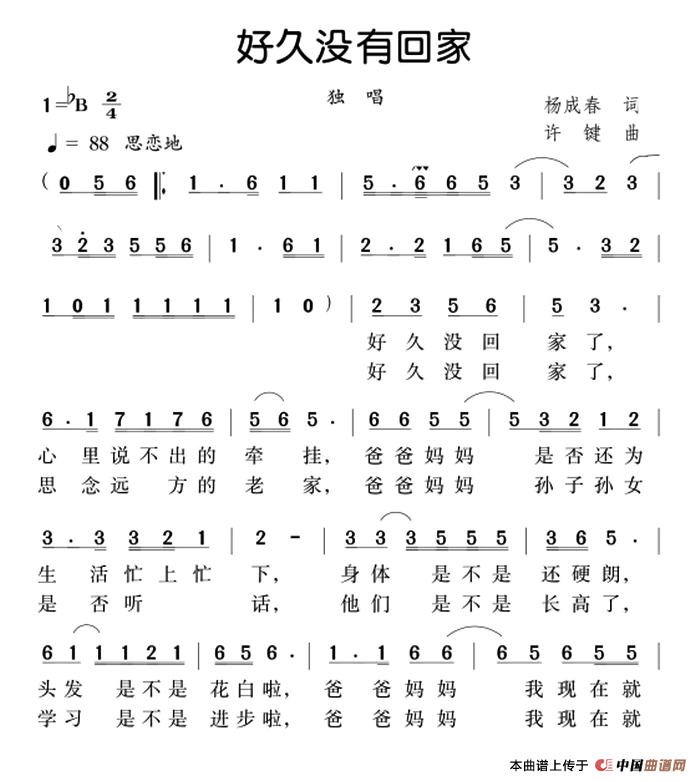 好久没有回家
1=♭B 2/4
独 唱
杨成春 词
许 键 曲
♩= 88 思恋地
( 0 5 6 ‖: 1 . 6 1 1 | 5 . 6 6 5 3 | 3 2 3
3 2 3 5 5 6 | 1 . 6 1 | 2 . 2 1 6 5 | 5 . 3 2
1 0 1 1 1 1 1 | 1 0 ) | 2 3 5 6 | 5 3 . |
好 久 没 回 家 了,
好 久 没 回 家 了,
6 . 1 7 1 7 6 | 5 6 5 . | 6 6 5 5 | 5 3 2 1 2
心 里 说 不 出 的 牵 挂, 爸 爸 妈 妈 是 否 还 为
思 念 远 方 的 老 家, 爸 爸 妈 妈 孙 子 孙 女
3 . 3 3 2 1 | 2 - | 3 3 3 5 5 5 | 3 6 5 . |
生 活 忙 上 忙 下, 身 体 是 不 是 还 硬 朗,
是 否 听 话, 他 们 是 不 是 长 高 了,
6 1 1 1 2 1 | 6 5 6 . | 1 . 1 6 6 | 6 5 6 5 5
头 发 是 不 是 花 白 啦, 爸 爸 妈 妈 我 现 在 就
学 习 是 不 是 进 步 啦, 爸 爸 妈 妈 我 现 在 就
本曲谱上传于 中国曲谱网